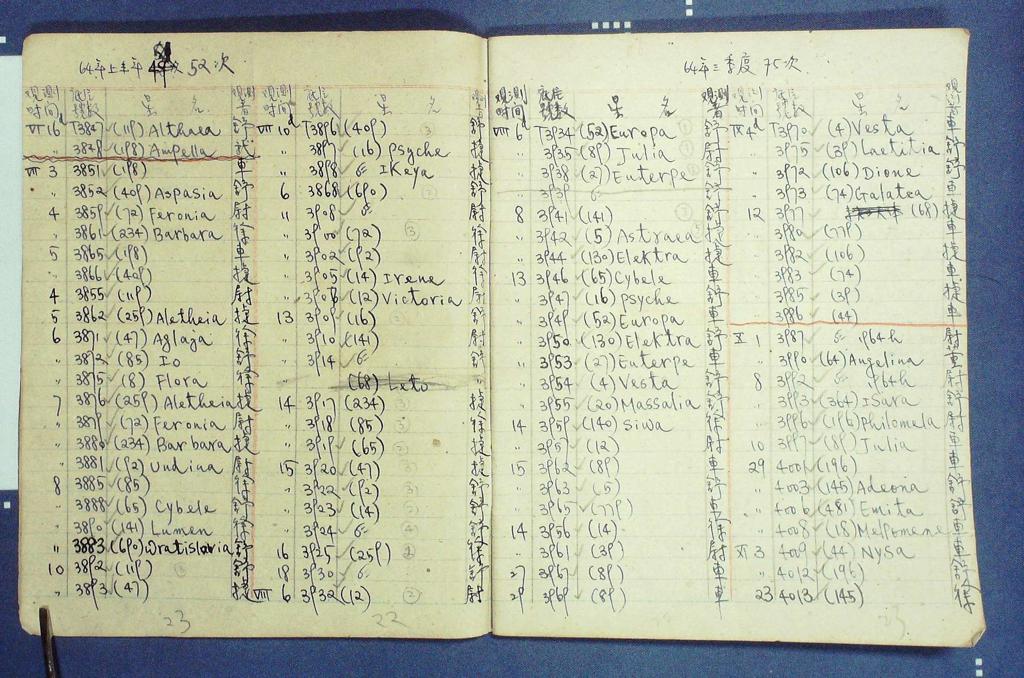 64年上半年 52次
观测时间 底片号数 星名 观测者
VII 16 T3847 (119) Althaea 舒
" 3848 (198) Ampella
VII 3 3851 (198) 車
" 3852 (409) Aspasia 舒
4 3859 (72) Feronia 尉
" 3861 (234) Barbara 徐
5 3865 (198) 車
" 3866 (409) 捷
4 3855 (119) 尉
5 3862 (259) Aletheia 捷
6 3871 (47) Aglaja 徐
" 3872 (85) Io 舒
" 3875 (8) Flora 徐
7 3876 (259) Aletheia 捷
" 3879 (72) Feronia 尉
" 3880 (234) Barbara 捷
" 3881 (92) Undina 尉
8 3885 (85) 徐
" 3888 (65) Cybele 舒
" 3890 (141) Lumen 徐
" 3883 (690) Wratislavia 舒
10 3892 (119) 舒
" 3893 (47) 捷
23
观测时间 底片号数 星名 观测者
VII 10 T3896 (409) 舒
" 3897 (16) Psyche 捷
" 3898 IKeya 捷
6 3868 (690) 舒
" 3908 尉
" 3900 (72) 徐
" 3902 (92) 尉
" 3905 (14) Irene 徐
" (12) Victoria 尉
13 3909 (16) 舒
" 3910 (141) 尉
" 3914 舒
(68) Leto
14 3917 (234) 捷
" 3918 (85) 徐
" 3919 (65) 捷
15 3920 (47) 捷
" 3922 (92) 舒
" 3923 (14) 舒
" 3924 徐
16 3925 (259) 徐
18 3930 舒
VIII 6 3932 (12) 尉
22
64年三季度 75次
观测时间 底片号数 星名 观测者
VIII 6 T3934 (52) Europa 舒
" 3935 (89) Julia 尉
" 3938 (27) Euterpe 舒
" 3939 舒
8 3941 (141) 舒
" 3942 (5) Astraea 捷
" 3944 (130) Elektra 捷
13 3946 (65) Cybele 車
" 3947 (16) Psyche 舒
" 3949 (52) Europa 車
" 3950 (130) Elektra 舒
" 3953 (27) Euterpe 車
" 3954 (4) Vesta 舒
" 3955 (20) Massalia 舒
14 3959 (140) Siwa 徐
" 3957 (12) 尉
15 3962 (89) 車
" 3963 (5) 舒
" 3965 (779) 車
14 3956 (14) 徐
" 3961 (39) 尉
27 3967 (89) 舒
29 3969 (89) 車
观测时间 底片号数 星名 观测者
IX 4 T3970 (4) Vesta 車
" 3975 (39) Laetitia 車
" 3972 (106) Dione 車
" 3973 (74) Galatea 車
12 3977 (68) 捷
" 3980 (779) 車
" 3982 (106) 捷
" 3983 (74) 車
" 3985 (39) 捷
" 3986 (44) 車
X 1 3987 1964h 尉
" 3990 (64) Angelina 車
8 3992 1964h 尉
" 3993 (364) Isara 舒
" 3996 (196) Philomela 尉
10 3997 (89) Julia 車
29 4001 (196) 車
" 4003 (145) Adeona 舒
" 4006 (481) Emita 舒
" 4008 (18) Melpomene 車
XI 3 4009 (44) Nysa 車
" 4012 (196) 舒
23 4013 (145) 徐
23